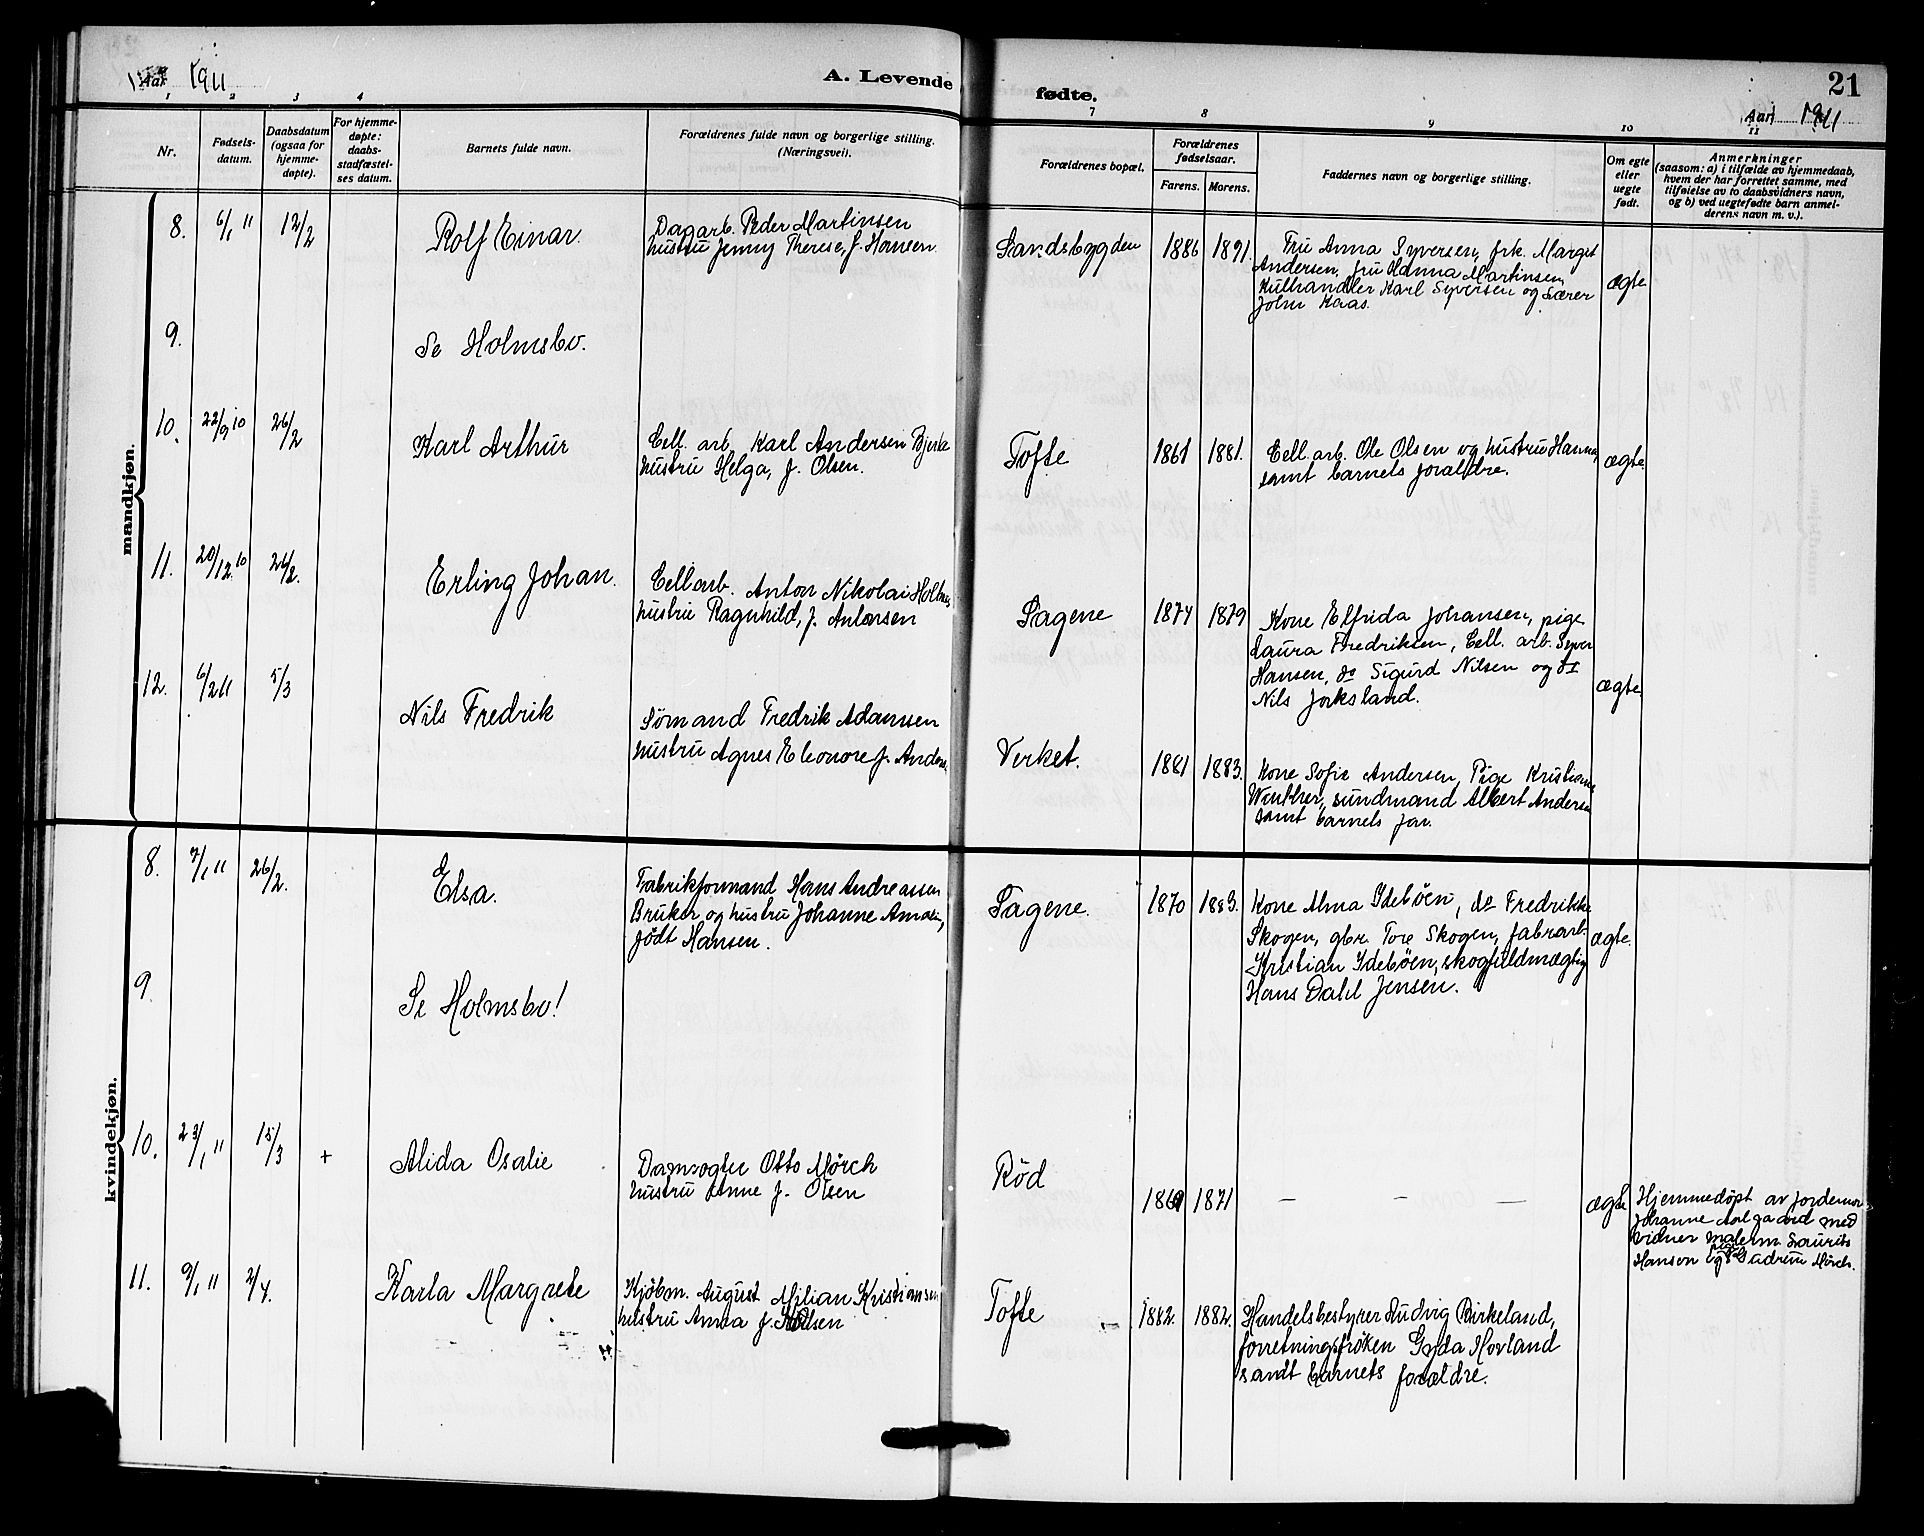 Aar 1911
A. Levende
fødte.
21
Aar 1911
1 2 3 4
7 8 9 10 11
Nr.
Fødsels-
datum.
Daabsdatum
(ogsaa for
hjemme-
døpte).
For hjemme-
døpte:
daabs-
stadfæstel-
ses datum.
Barnets fulde navn.
Forældrenes fulde navn og borgerlige stilling.
(Næringsvei).
Forældrenes bopæl.
Forældrenes
fødselsaar.
Farens. Morens.
Faddernes navn og borgerlige stilling.
Om egte
eller
uegte
født.
Anmerkninger
(saasom: a) i tilfælde av hjemmedaab,
hvem der har forrettet samme, med
tilføielse av to daabsvidners navn,
og b) ved uegtefødte barn anmel-
derens navn m. v.).
mandkjøn.
8. 6/1 11 12/2 Rolf Einar.
Dagarb. Peder Martinsen
hustru Jenny Therese, f. Hansen.
Sandsbygden 1886 1891.
Fru Anna Syversen, frk. Margit
Andersen, fru Hanna Martinsen,
Kulhandler Karl Syversen og Lærer
John Kaas.
ægte
9. Se Holmsbo.
10. 22/9 10 26/2 Karl Arthur
Cell. arb. Karl Andersen Bjerke
hustru Helga, f. Olsen.
Tofte 1861 1881.
Cell. arb. Ole Olsen og hustru Hanna,
samt barnets forældre.
ægte.
11. 20/12 10 26/2. Erling Johan.
Cellarb. Anton Nikolai
hustru Ragnhild, f. Antonsen
Sagene 1874 1879
Kone Elfrida Johansen, pige
Laura Fredriksen, Cell. arb. Syver
Hansen, do Sigurd Nilsen og do
Nils
ægte.
12. 6/2 11 5/3 Nils Fredrik
Sømand Fredrik Adamsen
hustru Agnes Eleonore f.
Verket. 1881 1883.
Kone Sofie Andersen, Pige
Winther, sundmand Albert Andersen
samt barnets far.
kvindekjøn.
8. 7/1 11 26/2. Elsa.
Fabrikformand Hans Andreassen
Bruker og hustru Johanne Amalie,
født Hansen.
Sagene. 1870 1883.
Kone Alma Idebøen, do Fredrikke
Skogen, gbr. Tore Skogen, fabrarb.
Kristian Idebøen, skogfuldmægtig
Hans Dahl Jensen.
ægte.
9. Se Holmsbo!
10. 23/1 11 15/3 + Alida Osalie
Damvogter Otto Mørch
hustru Anne f. Olsen
Rød 1869 1871 — — —
ægte
Hjemmedøpt av jordemor
Johanne med
vidner malerm. Laurits
Hansen og Pige Gudrun Mørch.
11. 9/1 11 2/4. Karla Margrete
Kjøbm. August Milian Kristiansen
hustru Anna f. Olsen
Tofte 1882. 1882.
Handelsbestyrer Ludvig Birkeland,
forretningsfrøken Gyda Hovland
samt barnets forældre.